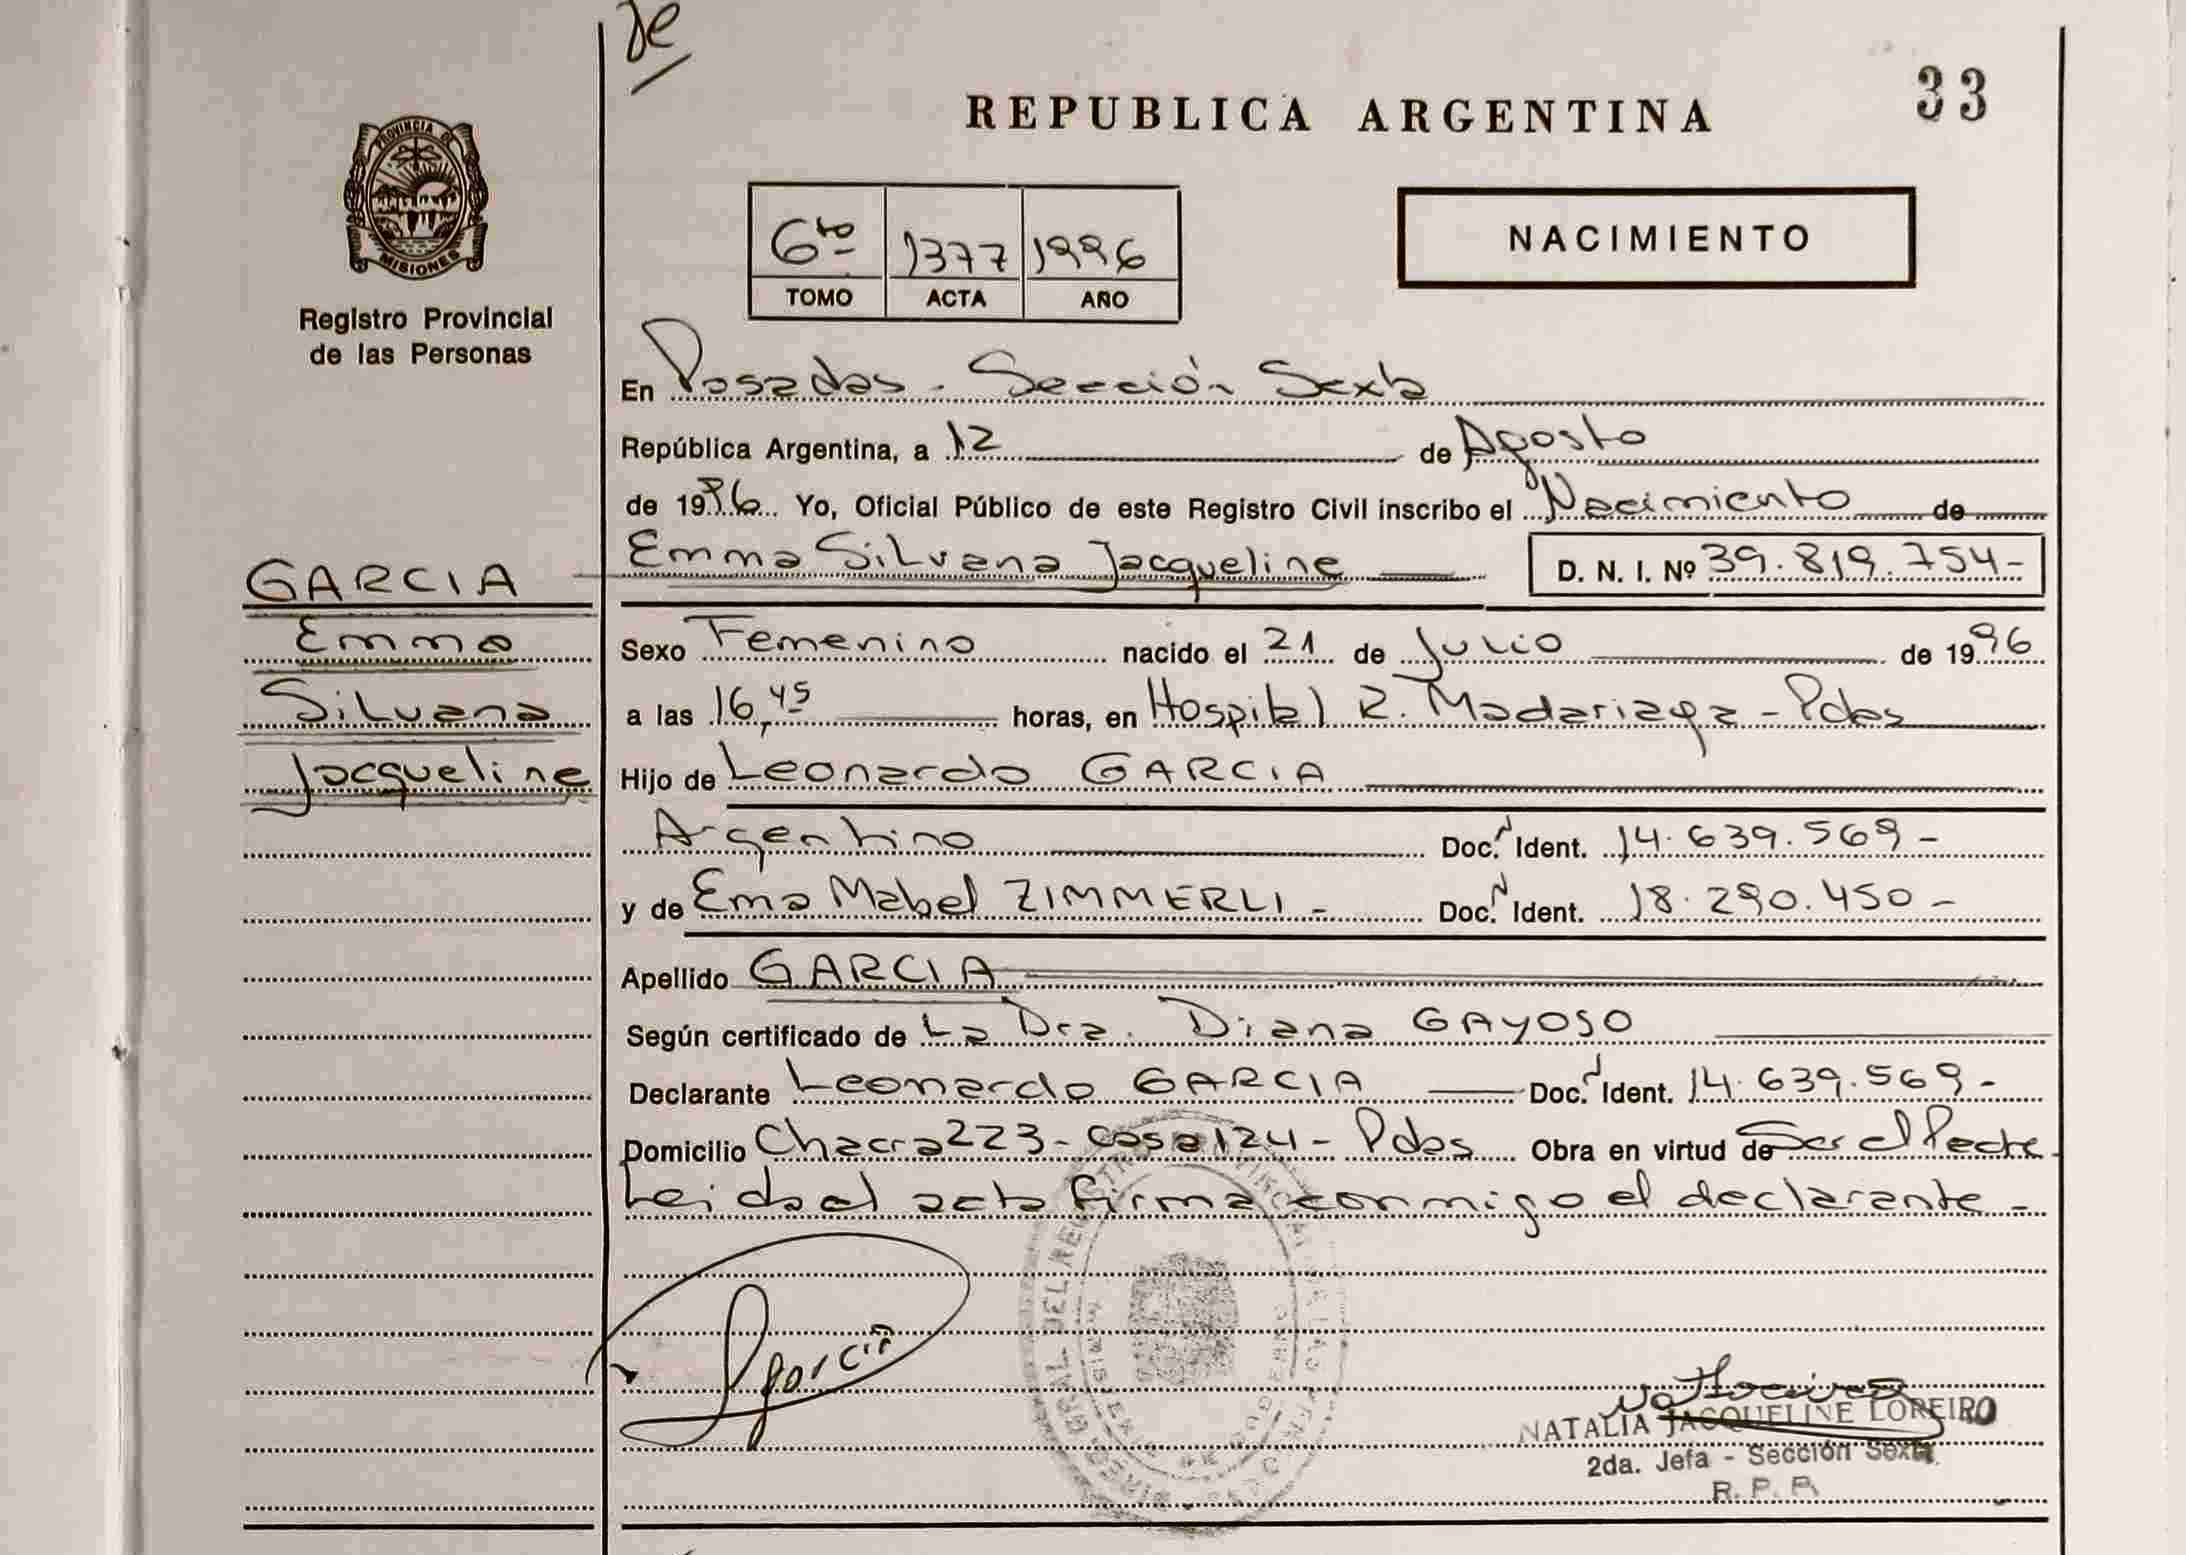 de
REPUBLICA ARGENTINA
33
PROVINCIA DE
MISIONES
Registro Provincial
de las Personas
6to 1377 1996
TOMO ACTA AÑO
NACIMIENTO
En Posadas - Sección Sexta
República Argentina, a 12 de Agosto
de 1996 Yo, Oficial Público de este Registro Civil inscribo el Nacimiento de
Emma Silvana Jacqueline D. N. I. Nº 39.819.754-
GARCIA
Emma
Silvana
Jacqueline
Sexo Femenino nacido el 21 de Julio de 1996
a las 16,45 horas, en Hospital R. Madariaga - Pdas
Hijo de Leonardo GARCIA
Argentino Doc. Ident. 14.639.569-
y de Ema Mabel ZIMMERLI - Doc. Ident. 18.290.450-
Apellido GARCIA
Según certificado de La Dra. Diana GAYOSO
Declarante Leonardo GARCIA Doc. Ident. 14.639.569-
Domicilio Chacra 223 - Casa 124 - Pdas Obra en virtud de Ser el
Leida el acta firma conmigo el declarante -
garcia
NATALIA JACQUELINE LOREIRO
2da. Jefa - Sección Sexta
R. P. P.